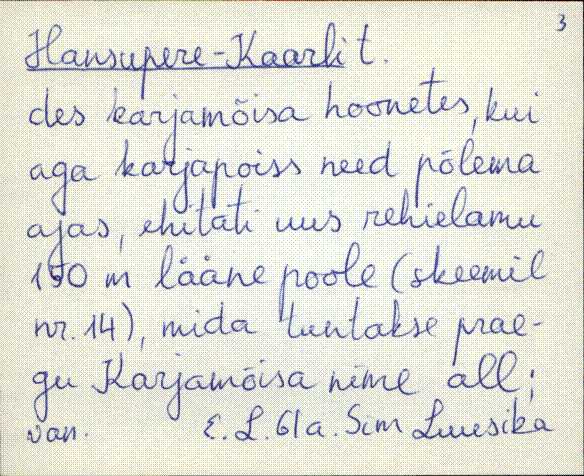 3
Hansupere-Kaarli t.
des karjamõisa hoonetes, kui
aga karjapoiss need põlema
ajas, ehitati uus rehielamu
150 m lääne poole (skeemil
nr. 14), mida tuntakse prae-
gu Karjamõisa nime all;
van. E. L. 61 a. Sim Luusika